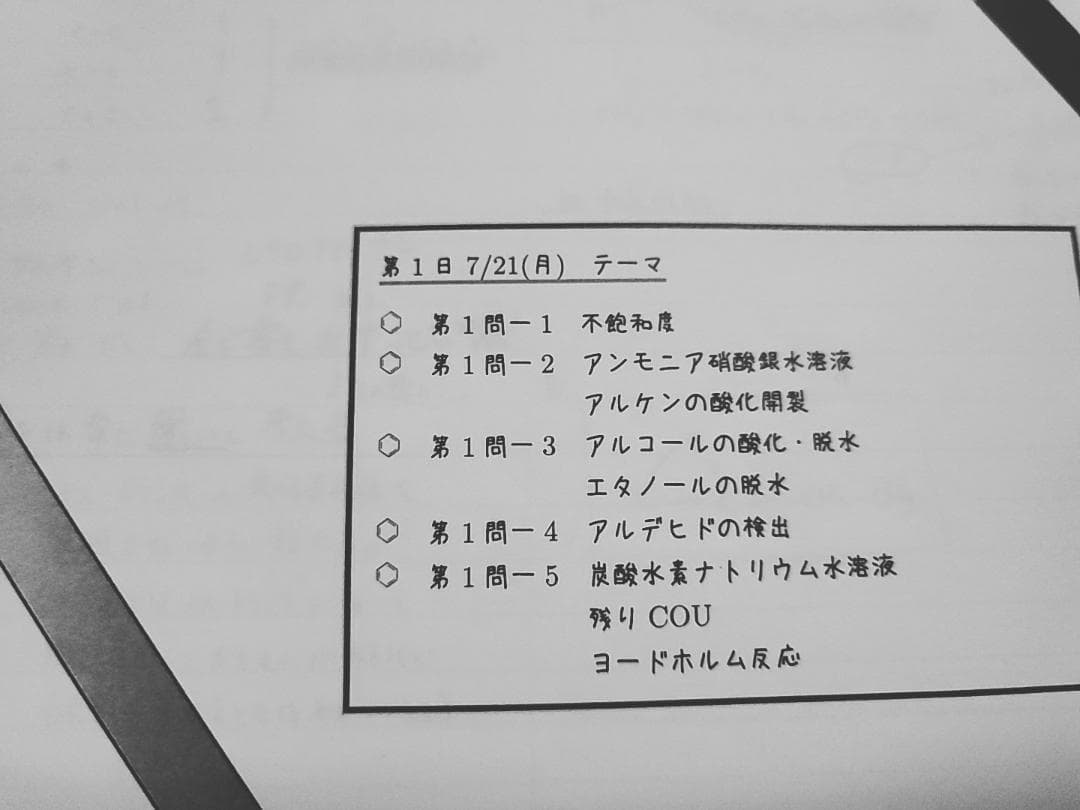 第1日 7/21(月) テーマ
第1問ー1 不飽和度
第1問ー2 アンモニア硝酸銀水溶液
アルケンの酸化開裂
第1問ー3 アルコールの酸化・脱水
エタノールの脱水
第1問ー4 アルデヒドの検出
第1問ー5 炭酸水素ナトリウム水溶液
残り COU
ヨードホルム反応